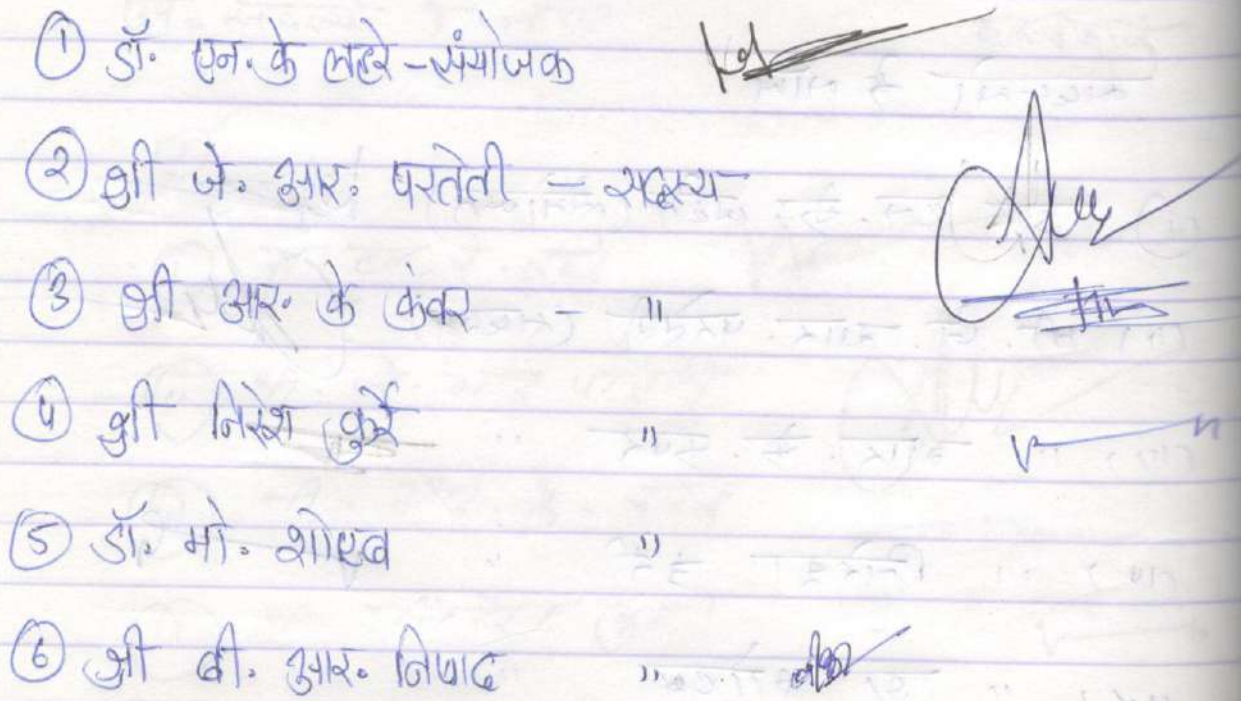 ① डॉ. एन. के लहरे - संयोजक
② श्री जे. आर. परतेती - सदस्य
③ श्री आर. के कंवर - "
④ श्री निरेश कुर्रे "
⑤ डॉ. मो. शोएब "
⑥ श्री बी. आर. निषाद "